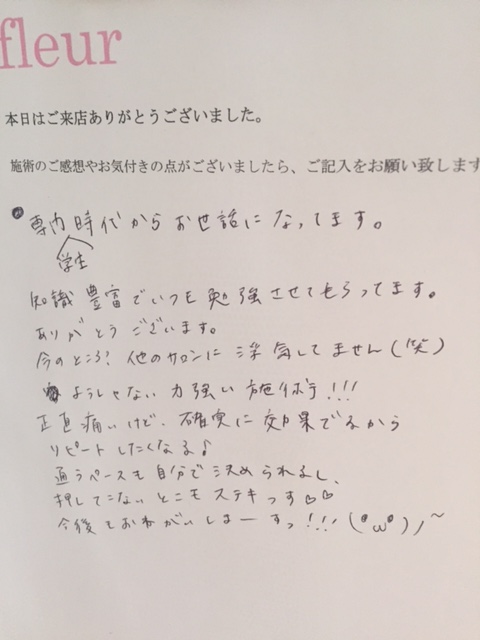 fleur
本日はご来店ありがとうございました。
施術のご感想やお気付きの点がございましたら、ご記入をお願い致します
●専門時代からお世話になってます。
学生
知識豊富でいつも勉強させてもらってます。
ありがとうございます。
今のところ?他のサロンに浮気してません(笑)
ようしゃない力強い施術!!!
正直痛いけど、確実に効果でるから
リピートしたくなる♪
通うペースも自分で決められるし、
押してこないとこもステキっす♡♡
今後ともおねがいしまーすっ!!!(°ω°)ノ~